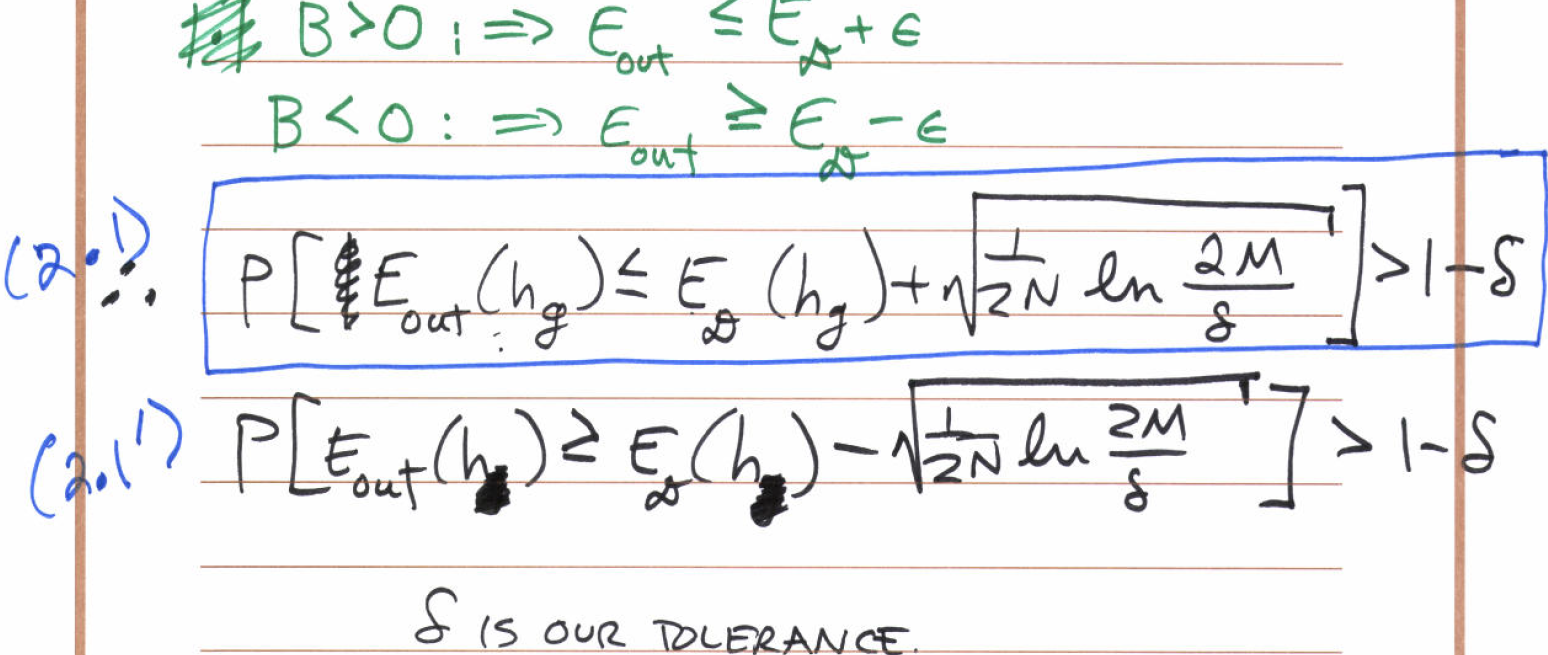 B > 0 : ⇒ E_out ≤ E_𝒟 + ϵ
B < 0 : ⇒ E_out ≥ E_𝒟 − ϵ
(2.1) ∴ P[E_out(h_g) ≤ E_𝒟(h_g) + √(1/2N ln 2M/δ)] > 1−δ
(2.1') P[E_out(h) ≥ E_𝒟(h) − √(1/2N ln 2M/δ)] > 1−δ
δ IS OUR TOLERANCE.